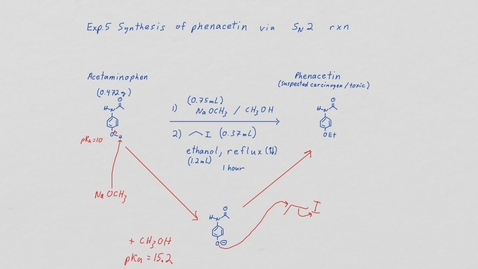 Exp.5 Synthesis of phenacetin via SN2 rxn
Acetaminophen
(0.472g)
Phenacetin
(suspected carcinogen/toxic)
1) (0.75mL) NaOCH3 / CH3OH
2) I (0.37mL)
ethanol, reflux (⇅)
(1.2mL)
1 hour
H N O
O H
pKa=10
NaOCH3
H N O
OEt
+ CH3OH
pKa = 15.2
H N O
O ⊖
I